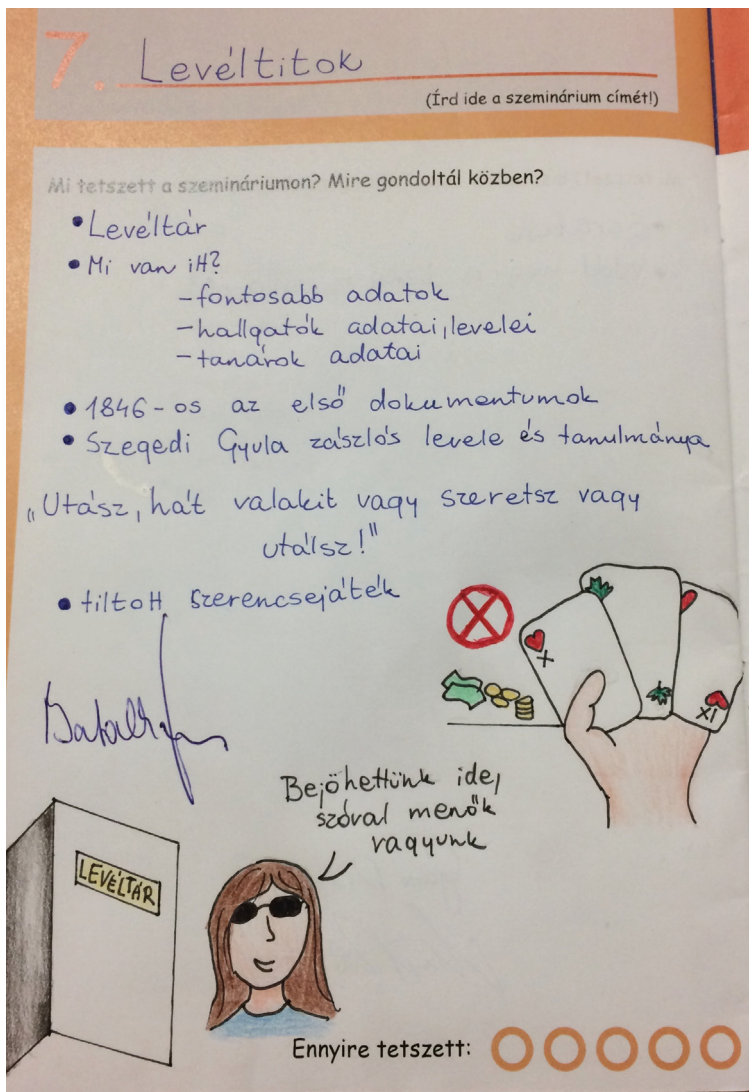 7. Levéltitok
(Írd ide a szeminárium címét!)
Mi tetszett a szemináriumon? Mire gondoltál közben?
• Levéltár
• Mi van itt?
- fontosabb adatok
- hallgatók adatai, levelei
- tanárok adatai
• 1846-os az első dokumentumok
• Szegedi Gyula zászlós levele és tanulmánya
„Utász, hát valakit vagy szeretsz vagy
utálsz!"
• tiltott szerencsejáték
X
XI
Bejöhettünk ide,
szóval menők
vagyunk
LEVÉLTÁR
Ennyire tetszett: